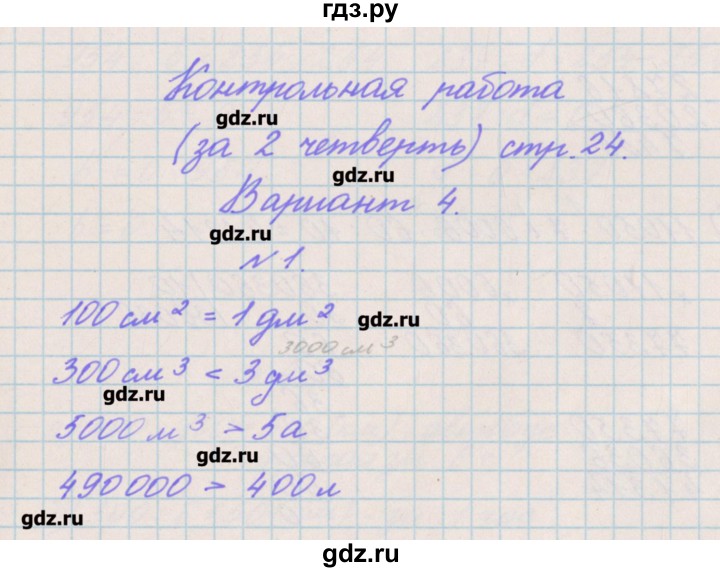 гдз.ру
Контрольная работа
gdz.ru
(за 2 четверть) стр. 24.
gdz.ru
Вариант 4.
gdz.ru
№ 1.
100 см² = 1 дм²
gdz.ru
3000 см³
300 см³ < 3 дм³
gdz.ru
5000 м³ > 5а
gdz.ru
490000 > 400 л
gdz.ru
gdz.ru